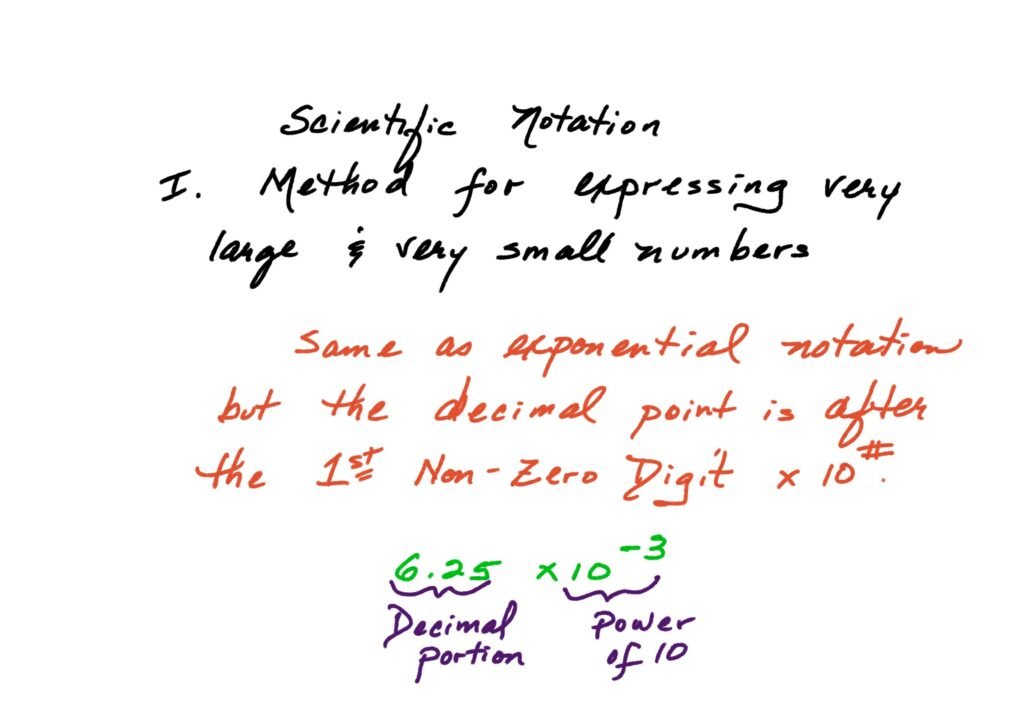 Scientific Notation
I. Method for expressing very
large & very small numbers
Same as exponential notation
but the decimal point is after
the 1st Non-Zero Digit x 10#.
6.25 x 10-3
Decimal Power
portion of 10